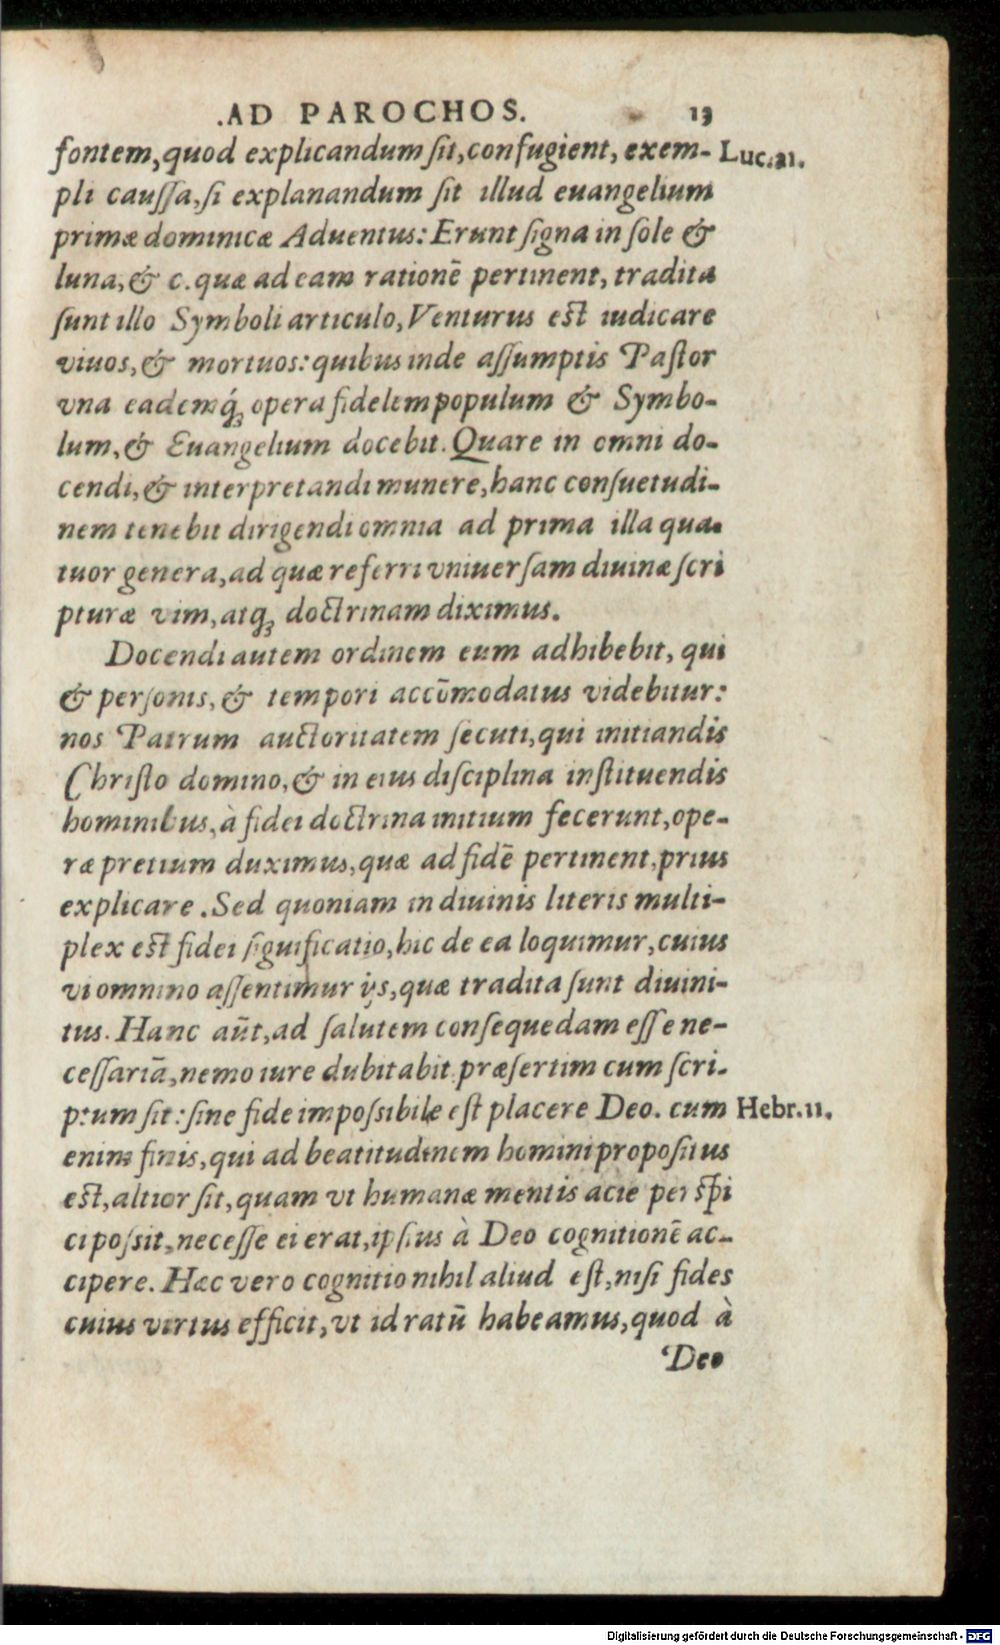 .AD PAROCHOS. 13
fontem, quod explicandum ſit, confugient, exem- Luc. 21.
pli cauſſa, ſi explanandum ſit illud euangelium
primæ dominicæ Aduentus: Erunt ſigna in ſole &
luna, & c. quæ ad eam rationē pertinent, tradita
ſunt illo Symboli articulo, Venturus eſt iudicare
viuos, & mortuos: quibus inde aſſumptis Paſtor
vna eademq́ꝫ opera fidelem populum & Symbo-
lum, & Euangelium docebit. Quare in omni do-
cendi, & interpretandi munere, hanc conſuetudi-
nem tenebit dirigendi omnia ad prima illa qua-
tuor genera, ad quæ referri vniuerſam diuinæ ſcri
pturæ vim, atqꝫ doctrinam diximus.
Docendi autem ordinem eum adhibebit, qui
& perſonis, & tempori accōmodatus videbitur:
nos Patrum auctoritatem ſecuti, qui initiandis
Chriſto domino, & in eius diſciplina inſtituendis
hominibus, à fidei doctrina initium fecerunt, ope-
ræ pretium duximus, quæ ad fidē pertinent, prius
explicare. Sed quoniam in diuinis literis multi-
plex eſt fidei ſignificatio, hic de ea loquimur, cuius
vi omnino aſſentimur ijs, quæ tradita ſunt diuini-
tus. Hanc aūt, ad ſalutem conſequedam eſſe ne-
ceſſariā, nemo iure dubitabit præſertim cum ſcri-
ptum ſit: ſine fide impoſsibile eſt placere Deo. cum Hebr. 11.
enim finis, qui ad beatitudinem homini propoſitus
eſt, altior ſit, quam vt humanæ mentis acie perſpi
ci poſsit, neceſſe ei erat, ipſius à Deo cognitionē ac-
cipere. Hæc vero cognitio nihil aliud eſt, niſi fides
cuius virtus efficit, vt id ratū habeamus, quod à
Deo
Digitalisierung gefördert durch die Deutsche Forschungsgemeinschaft - DFG